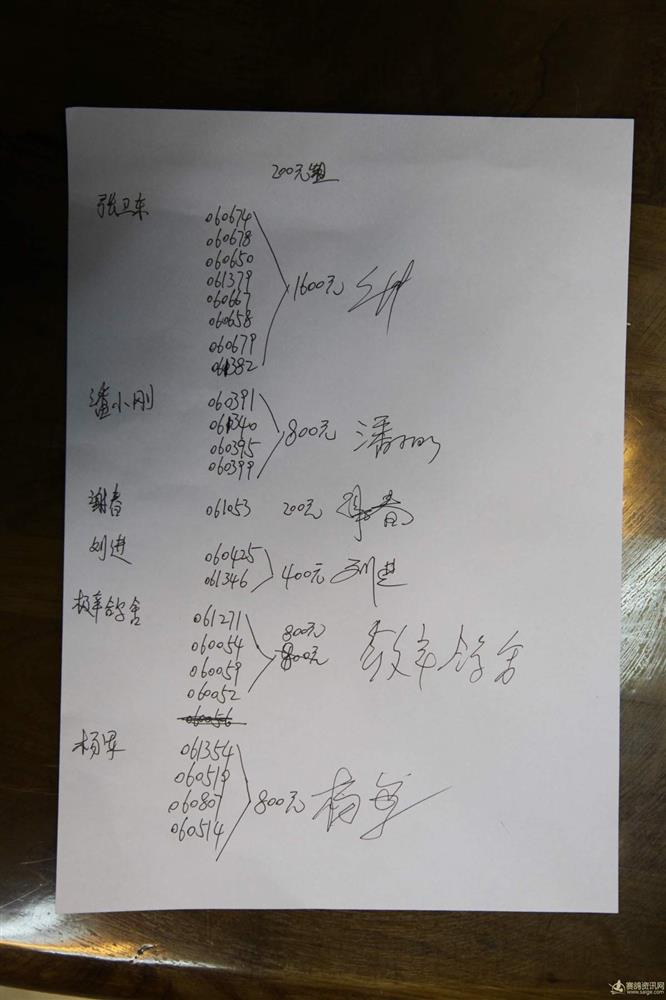 200元组
张卫东
060674
060678
060650
061379
060667
060658
060679
061382
1600元
潘小刚
060391
061340
060395
060399
800元 潘小刚
谢春 061053 200元 谢春
刘进
060425
061346
400元 刘进
鸽舍
061271
060054
060059
060052
060056
800元
800元
鸽舍
杨军
061354
060519
060807
060514
800元 杨军
赛鸽资讯网
www.saige.com